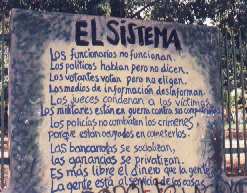 EL SISTEMA
Los funcionarios no funcionan.
Los políticos hablan pero no dicen.
Los votantes votan pero no eligen.
Los medios de información desinforman.
Los jueces condenan a las víctimas.
Los militares están en guerra contra sus compatriotas.
Los policías no combaten los crímenes,
porque están ocupados en cometerlos.
Las bancarrotas se socializan,
las ganancias se privatizan.
Es más libre el dinero que la gente.
La gente está al servicio de las cosas.